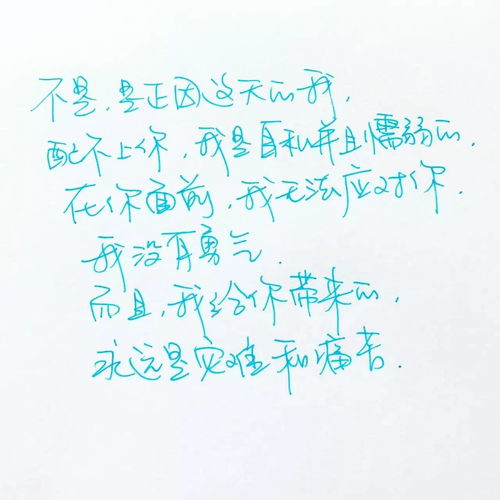 不是,是正因这天的我,
配不上你,我是自私并且懦弱的.
在你面前,我无法应对你.
我没有勇气.
而且,我给你带来的,
永远是灾难和痛苦.